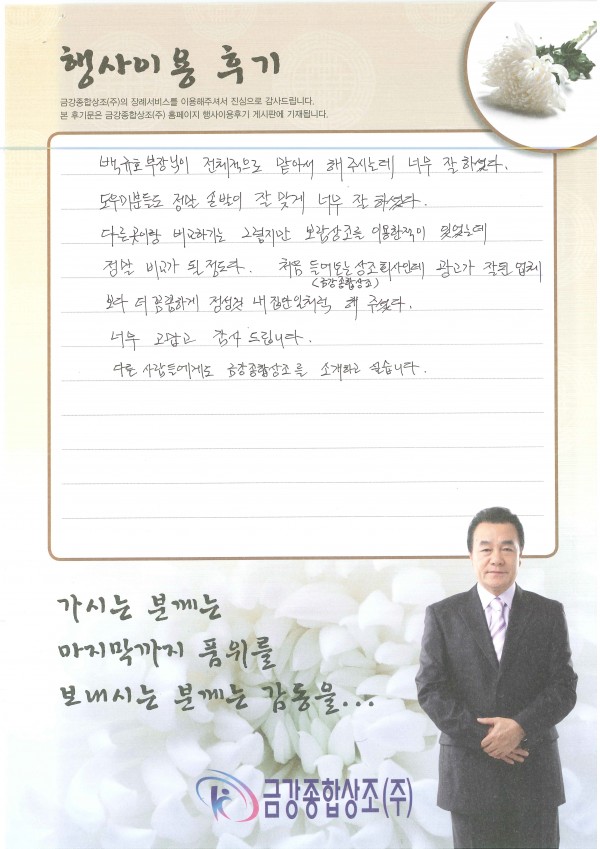 행사이용 후기
금강종합상조(주)의 장례서비스를 이용해주셔서 진심으로 감사드립니다.
본 후기문은 금강종합상조(주) 홈페이지 행사이용후기 게시판에 기재됩니다.
백규호 부장님이 전체적으로 맡아서 해 주시는데 너무 잘 하셨다.
도우미분들도 정말 손발이 잘 맞게 너무 잘 하셨다.
다른곳이랑 비교하기는 그렇지만 보람상조를 이용한적이 있었는데
정말 비교가 된 정도다. 처음 들어보는 상조회사인데 광고가 잘된 업체
(금강종합상조)
보다 더 꼼꼼하게 정성껏 내 집안일처럼 해 주셨다.
너무 고맙고 감사 드립니다.
다른 사람들에게도 금강종합상조를 소개하고 싶습니다.
가시는 분께는
마지막까지 품위를
보내시는 분께는 감동을...
금강종합상조(주)